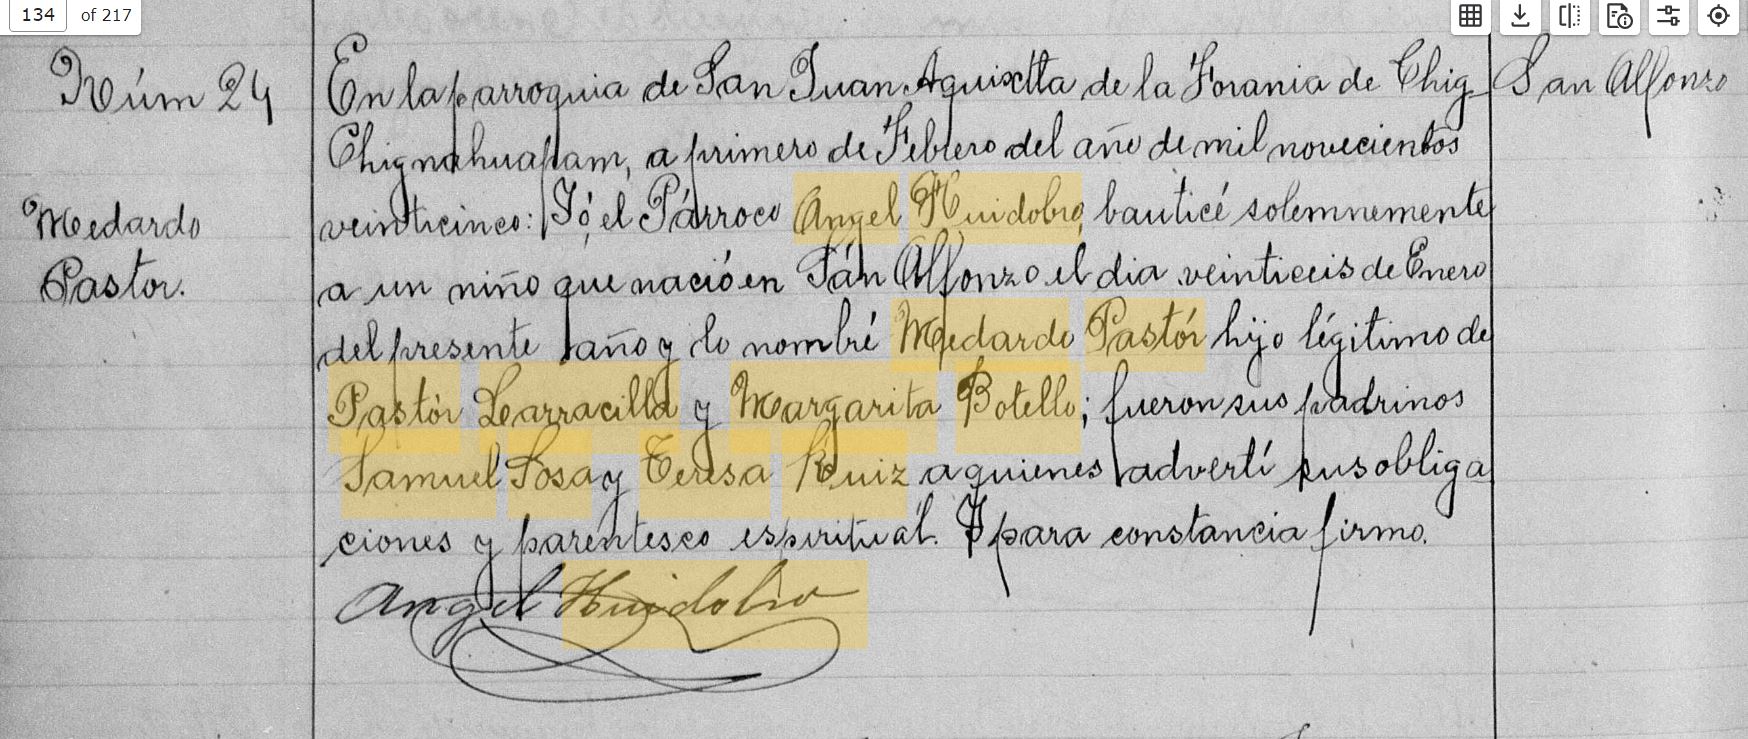 134 of 217
Núm 24
Medardo
Pastor.
En la parroquia de San Juan Aquixtla de la Forania de Chig
Chignahuapam, a primero de Febrero del año de mil novecientos
veinticinco: Yó, el Párroco Angel Huidobro, bauticé solemnemente
a un niño que nació en Sán Alfonzo el dia veinticeis de Enero
del presente año y lo nombré Medardo Pastór hijo légitimo de
Pastór Larracilla y Margarita Botello; fueron sus padrinos
Samuel Sosa y Teresa Ruiz a quienes advertí sus obliga
ciones y paréntesco espiritual. Y para constancia firmo.
Angel Huidobro
San Alfonzo